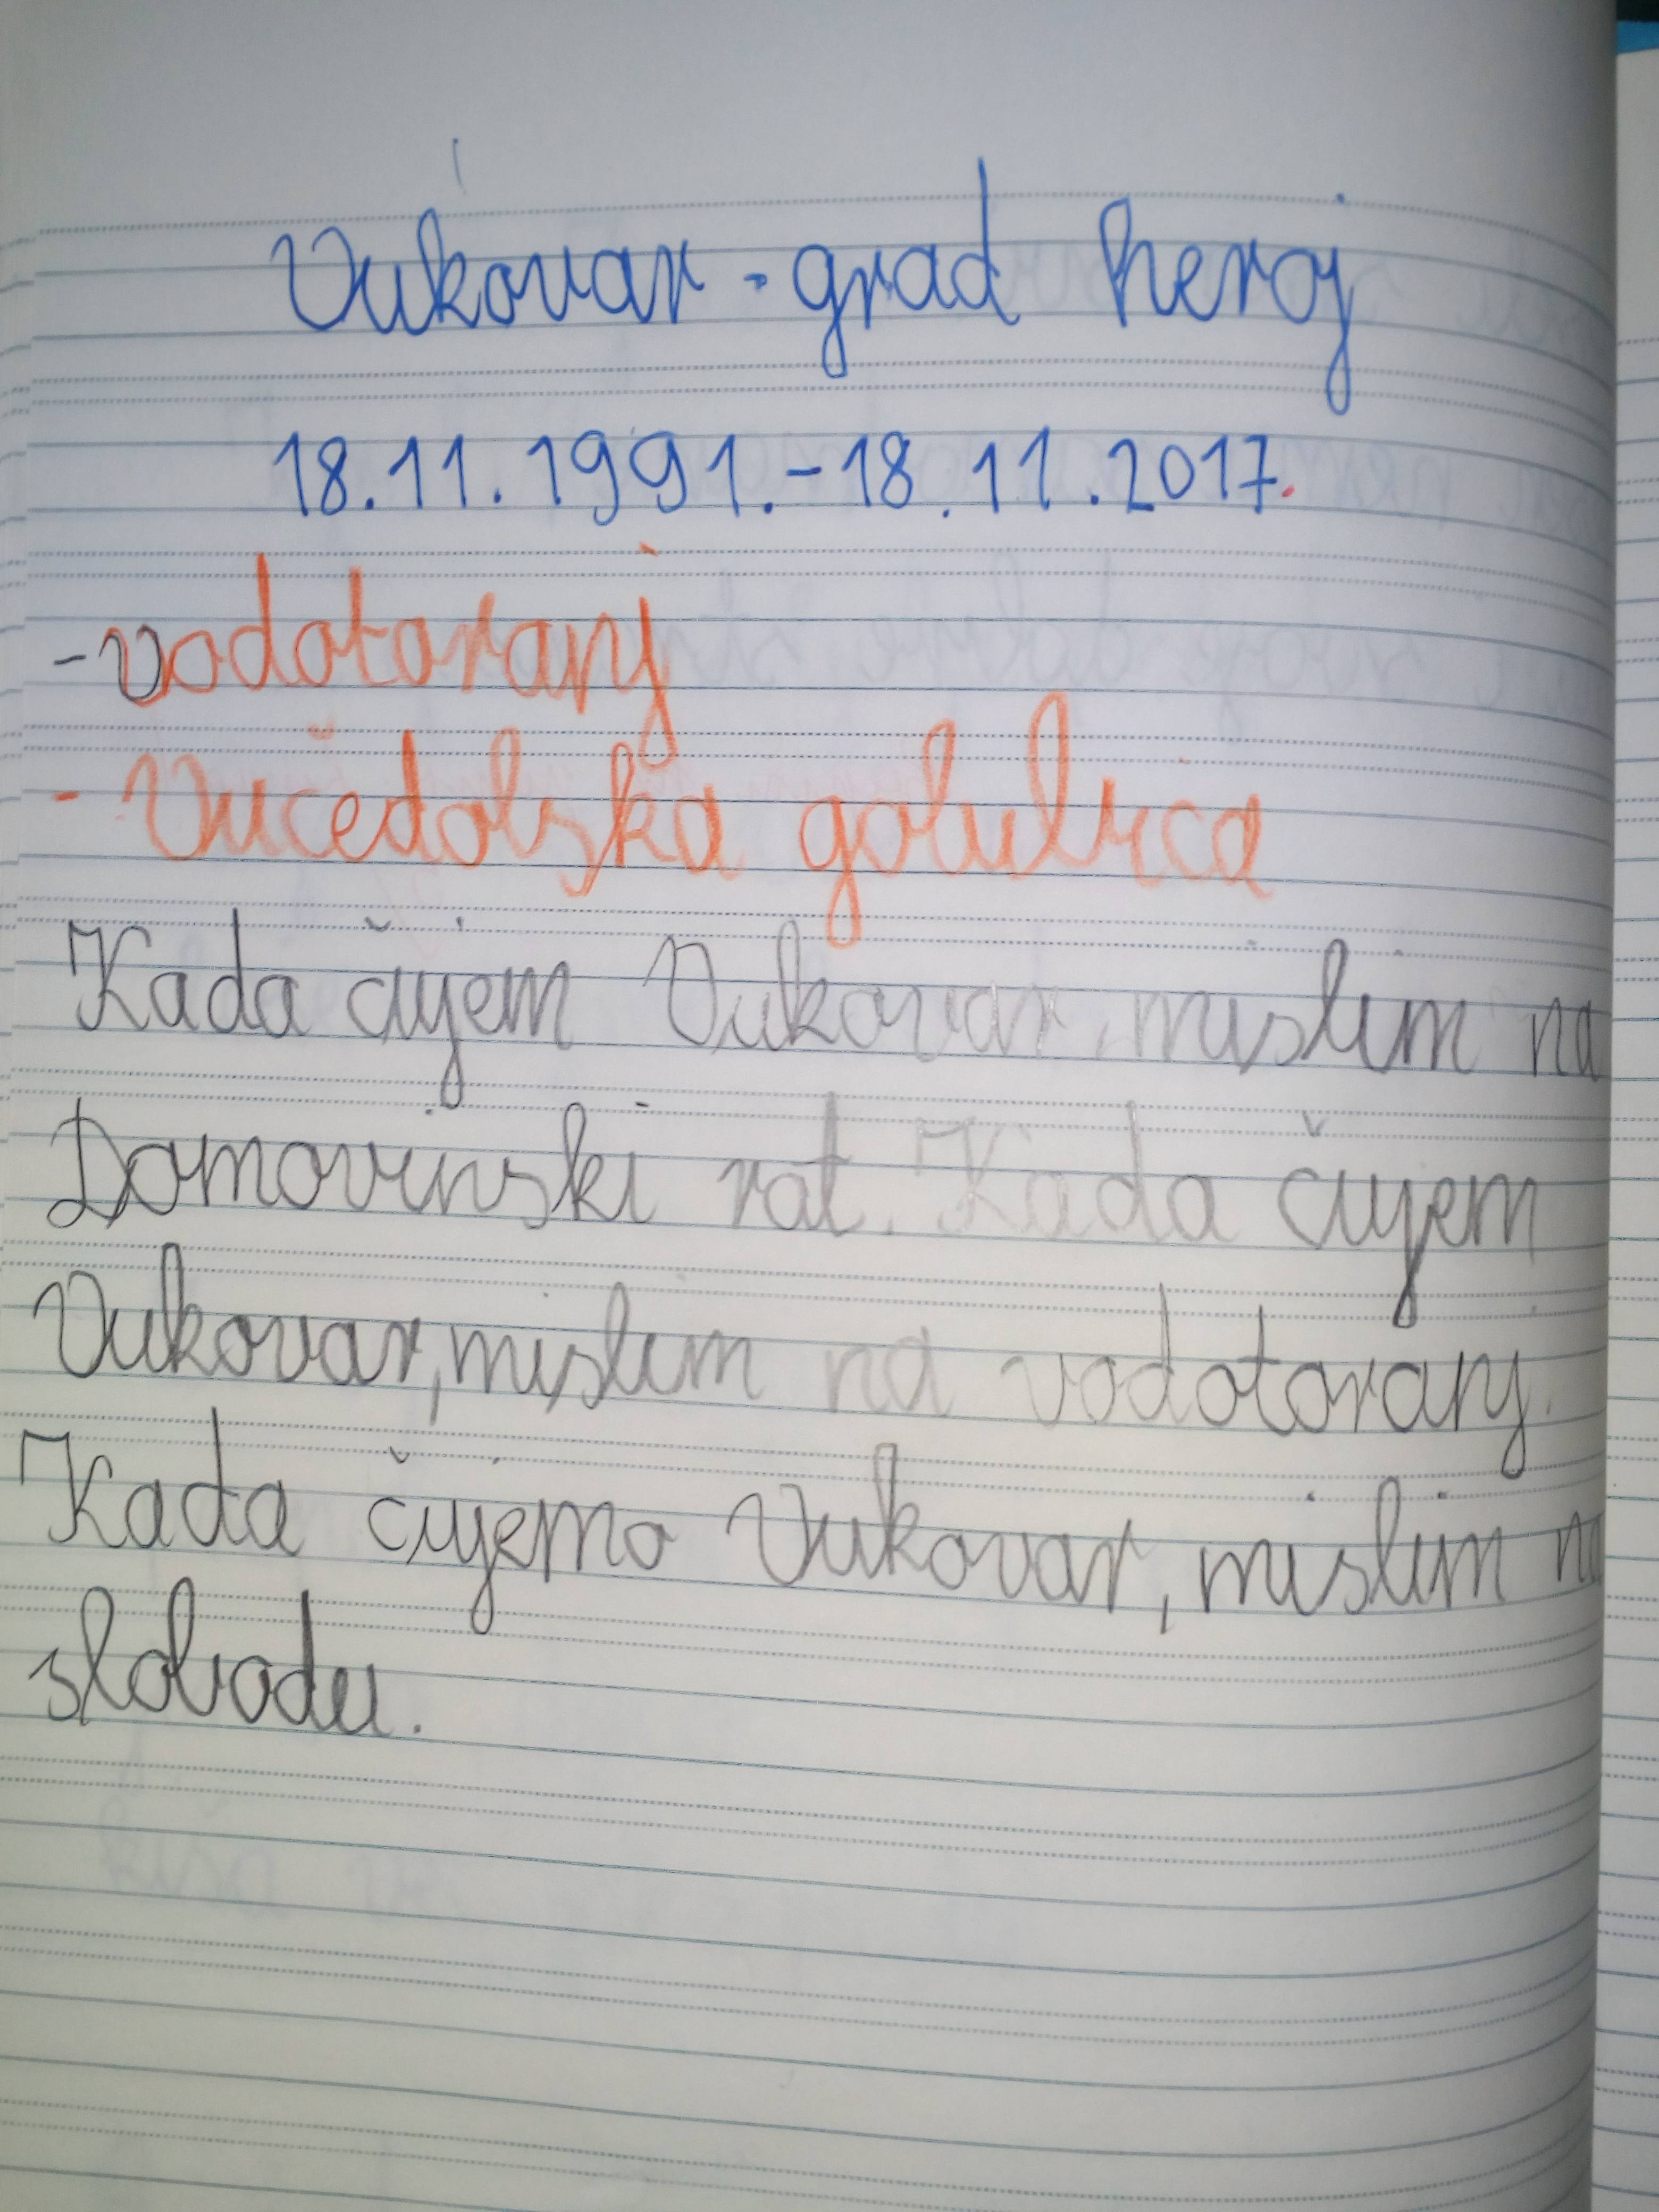 Vukovar - grad heroj
18.11.1991.-18.11.2017.
-vodotoranj
- Vučedolska golubica
Kada čujem Vukovar, mislim na
Domovinski rat. Kada čujem
Vukovar, mislim na vodotoranj.
Kada čujemo Vukovar, mislim na
slobodu.